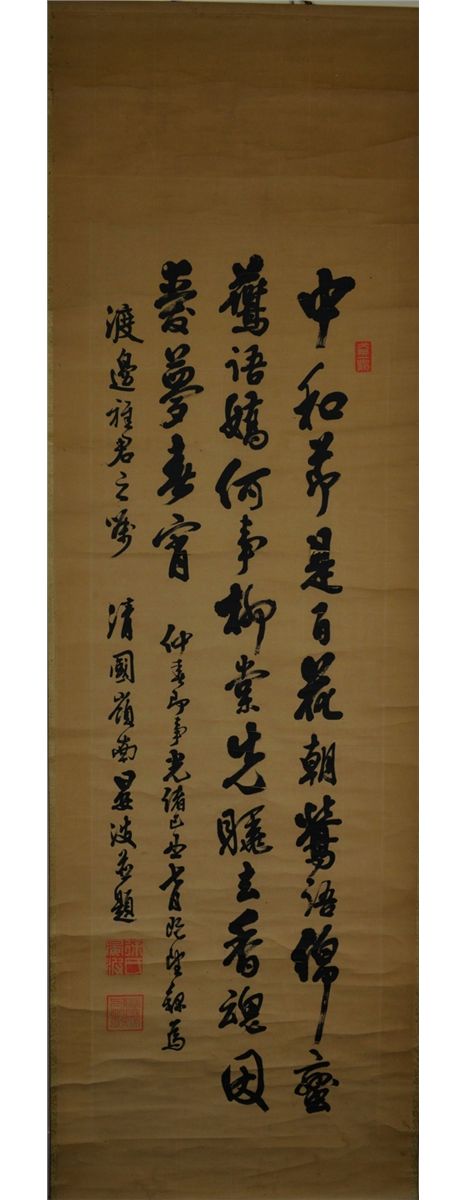 中和節是百花朝鶯語綿蠻
鷰語嬌何事柳棠先睡去香魂因
愛夢春宵
仲春即事光緒己丑七月既望録爲
渡邊雅君之嘱 清國嶺南波題